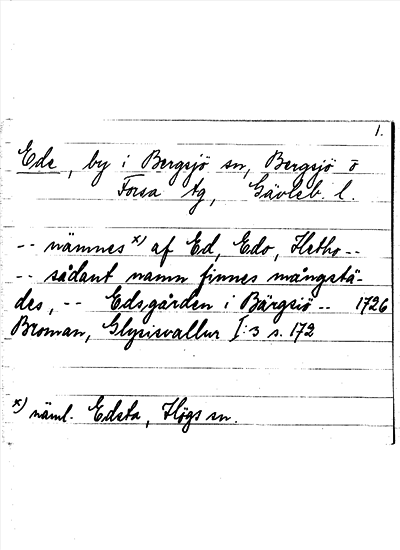 1.
Ede, by i Bergsjö sn, Bergsjö o
Forsa tg, Gävleb. l.
-- nämnes x) af Ed, Edo, Hetho--
-- sådant namn finnes mångstä-
des, -- Edsgården i Bärgsiö -- 1726
Broman, Glysisvallur I:3 s. 172
x) näml. Edsta, Högs sn.